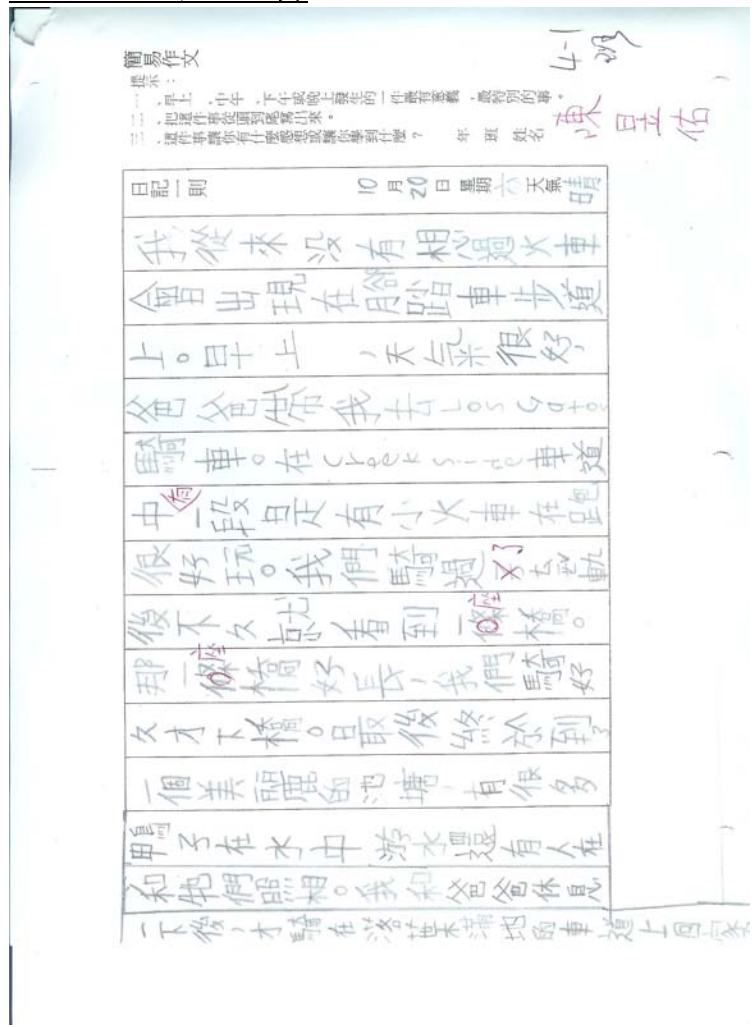 簡易作文
提示：
一、早上、中午、下午或晚上發生的一件最有意義、最特別的事。
二、把這件事從頭到尾寫出來。
三、這件事讓你有什麼感想或讓你學到什麼？ 年 班 姓名
4-1
陳昱佑
日記一則 10月20日星期六天氣晴
我從來没有想過火車
會出現在腳踏車步道
上。早上，天氣很好，
爸爸帶我去Los Gatos
騎車。在Creek Side車道
中有一段是有小火車在跑
很好玩。我們騎過了鐵軌
後不久就看到一座條橋。
那一座條橋好長，我們騎好
久才下橋。最後終於到了
一個美麗的池塘，有很多
鴨子在水中游水還有人在
和牠們照相。我和爸爸休息
一下後，才騎在落葉滿地的車道上回家